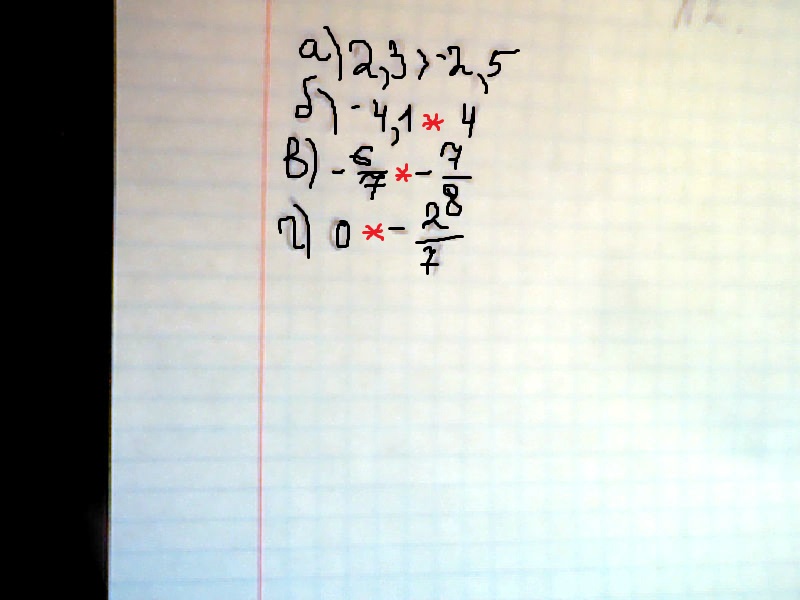 а) 2,3 > -2,5
б) -4,1 * 4
в) - 6/7 * - 7/8
г) 0 * - 2/7